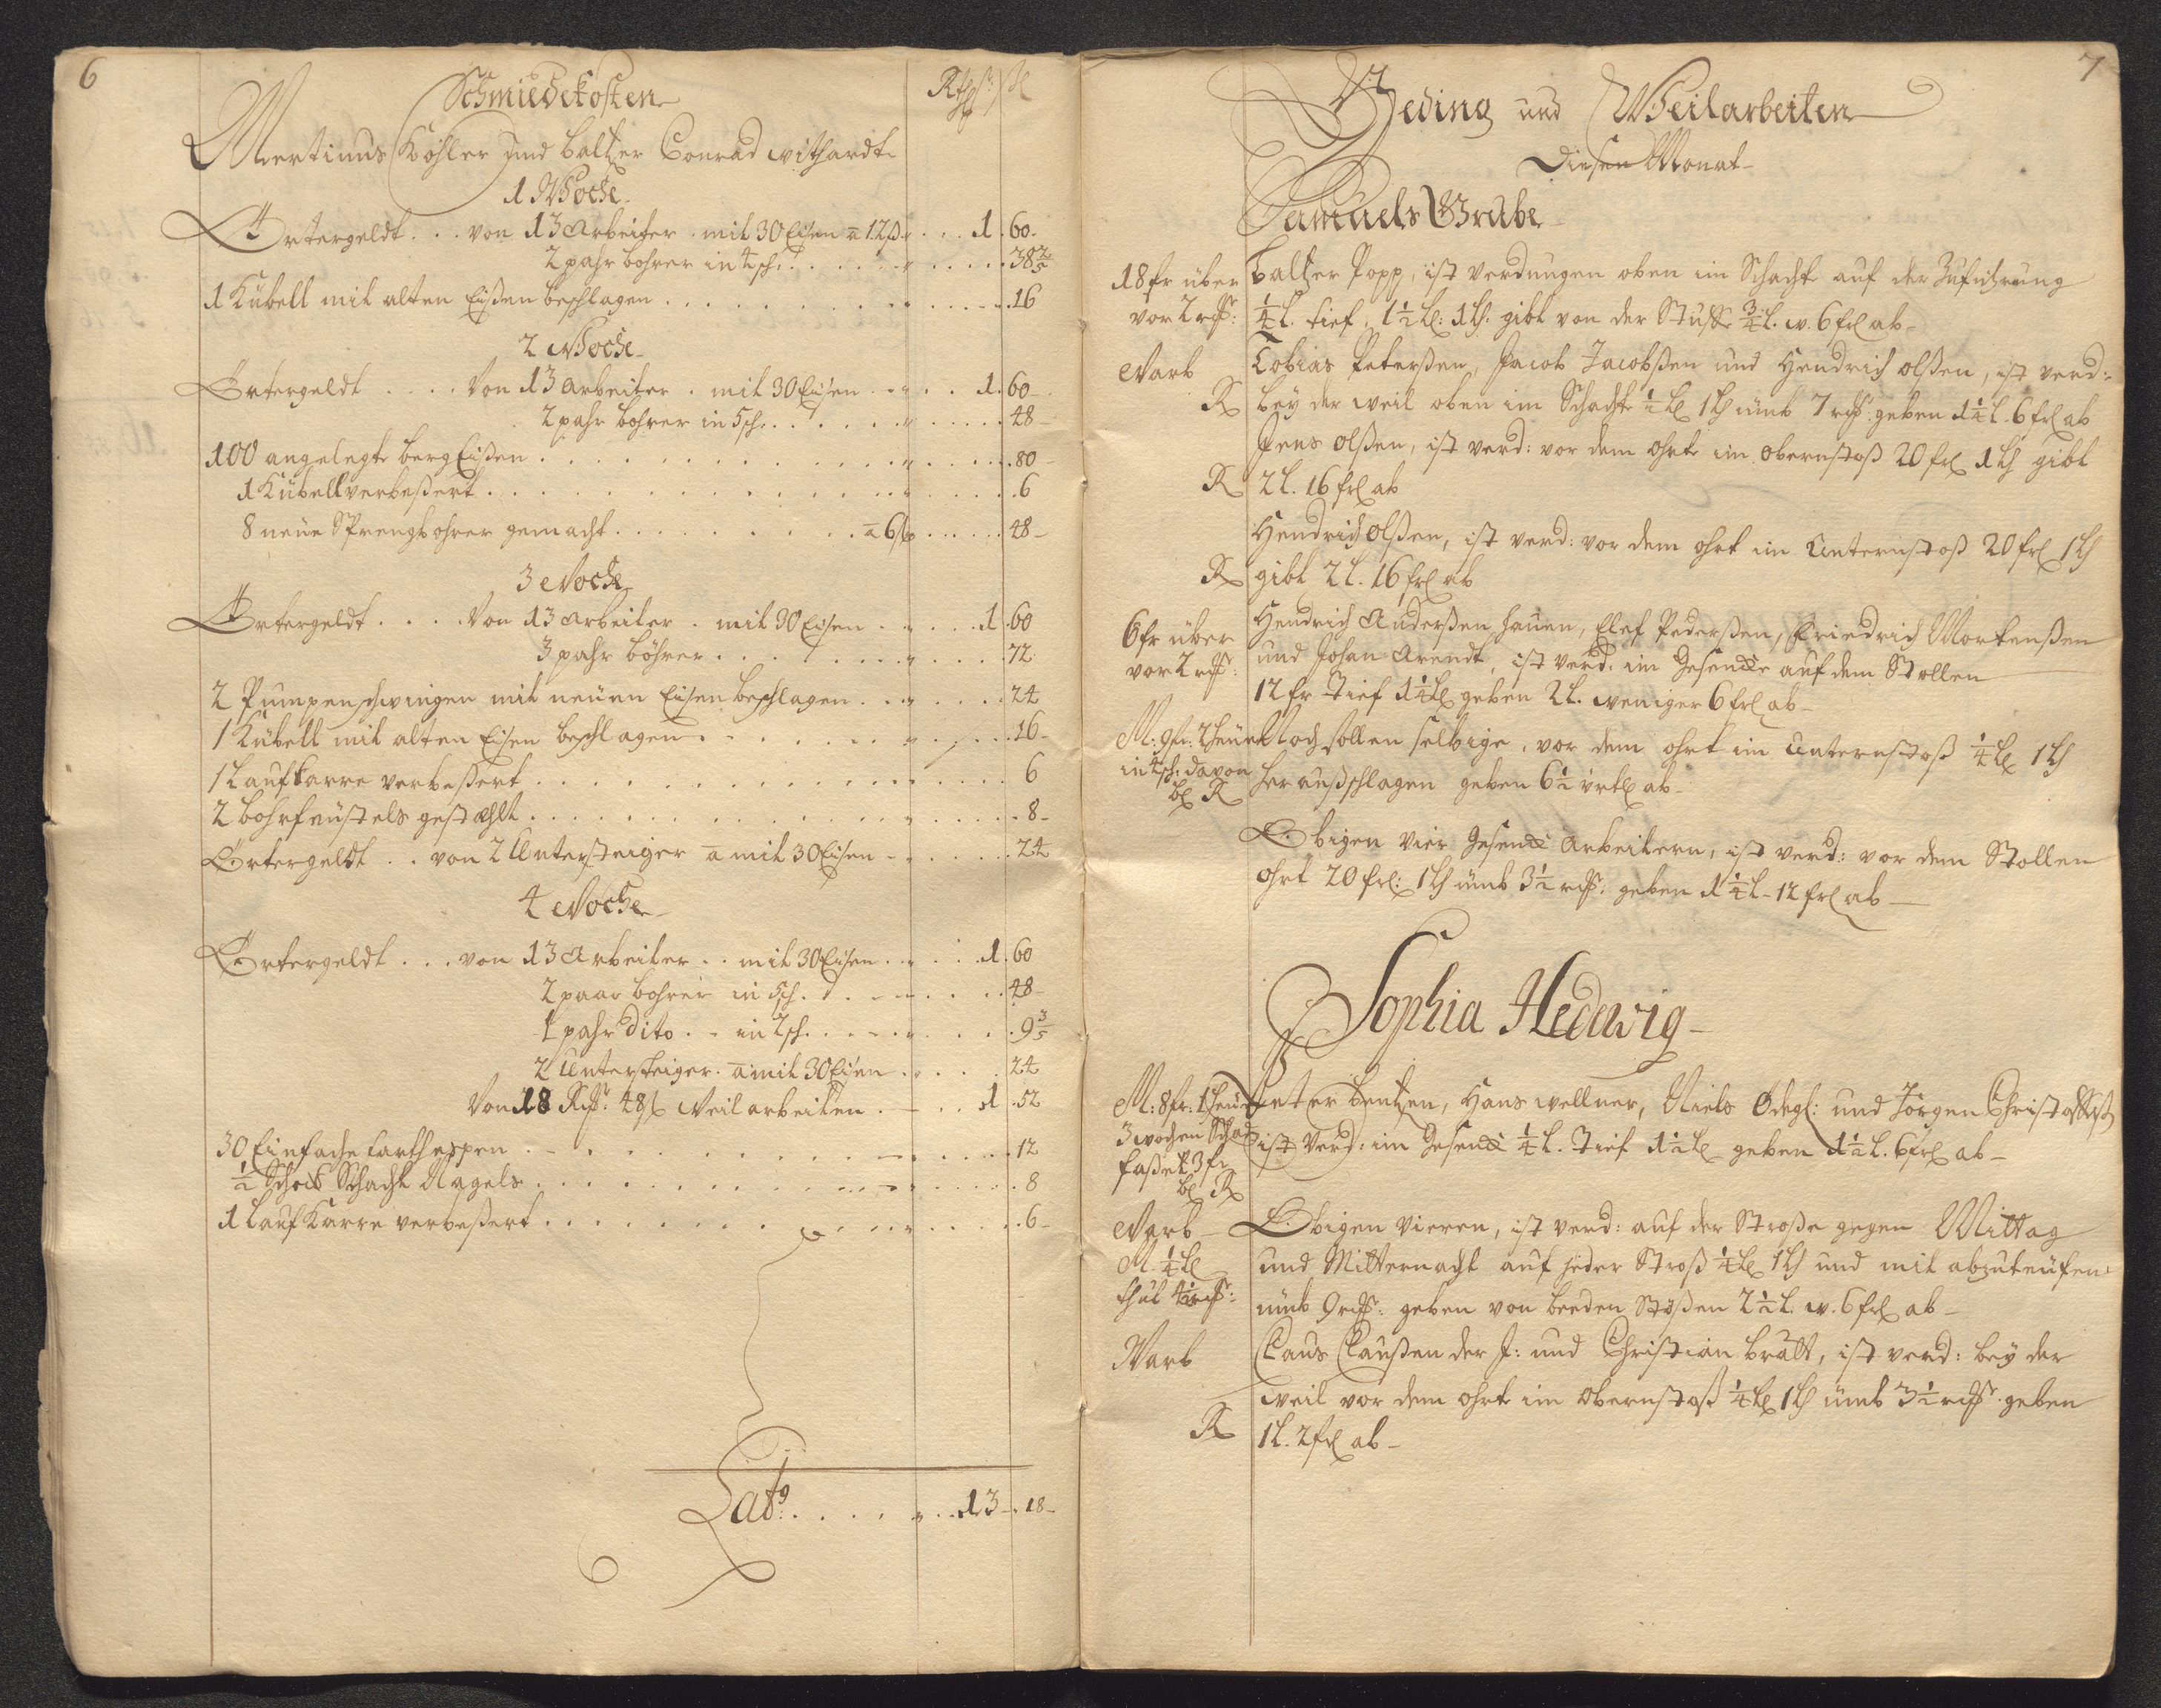 6
Schmiedekosten
Rthlr: ß
Mertinus Köhler Und baltzer Conrad withardt
1 Woche
Örtergeldt . . . von 13 Arbeiter . mit 30 Eisen a 12ß . . . 1. 60.
2 pahr bohrer in 4 sch: . . . . . 38 2/5
1 Kübell mit alten Eißen beschlagen . . . . . 16
2 Woche
Örtergeldt . . . . Von 13 Arbeiter . mit 30 Eisen . . . 1. 60
2 pahr bohrer in 5 sch: . . . . . 48
100 angelegte berg Eißen . . . . . 80
1 Kübell verbeßert . . . . . 6
8 neüe Sprengbohrer gemacht . . . . . a 6ß . . . . 48
3 Woche
Örtergeldt . . . . Von 13 Arbeiter . mit 30 Eisen . . . 1. 60
3 pahr böhrer . . . . . 72
2 Pumpenschwingen mit neüen Eisen beschlagen . . . 24
1 Kübell mit alten Eisen beschlagen . . . . . 16
1 Laufkarre verbeßert . . . . . 6
2 bohrfeüstels gestæhlt . . . . . 8
Örtergeldt . . von 2 Untersteiger a mit 30 Eisen . . . 24
4 Woche
Örtergeldt . . . von 13 Arbeiter . . mit 30 Eisen . . . 1. 60
2 paar bohrer in 5 sch. . . . . 48
1 pahr dito . . in 2 sch. . . . . 9 3/5
2 Untersteiger. a mit 30 Eisen . . . . 24
Von 18 Rthr: 48ß Weilarbeiten . . . 1. 52
30 Einfache Carthespen . . . . . 12
1/2 Schock Schacht Nagels . . . . . 8
1 Lauf Karre verbeßert . . . . . 6
Lat9: . . . . . 13. 18
7
Geding und Weilarbeiten
Diesen Monat
Samuels Grube
18 fr über
vor 2 rthr:
baltzer Popp, ist verdungen oben im Schacht auf der Zuführung
1/4 L. tief, 1 1/2 L: 1 Lh. gibt von der Stuffe 3/4 L. w. 6 frl ab
Warb
Tobias Peterßen, Jacob Jacobßen und Hendrich olßen, ist verd:
R
bey der weil oben im Schacht 1/2 L 1 Lh ümb 7 rthr: geben 1 1/4 L. 6 frl ab
Jens olßen, ist verd: vor dem ohrt im obernstoß 20 frl 1 Lh gibt
R
2 L. 16 frl ab
Hendrich olßen, ist verd: vor dem ohrt im Unternstoß 20 frl 1 Lh
R
gibt 2 L. 16 frl ab
6 fr über
vor 2 rthr:
Hendrich Anderßen hauen, Elef Pederßen, Friedrich Mortenßen
und Johan Arendt, ist verd: im Gesencke auf dem Stollen
12 fr Tief 1 1/4 L geben 2 L. weniger 6 frl ab
M: 9 fr. 2 heüer
in 4 sch: davon
R
Noch sollen selbige, vor dem ohrt im Unternstoß 1/4 L 1 Lh
heraußschlagen geben 6 1/2 vrtl ab
Obigen vier Gesenck Arbeitern, ist verd: vor dem Stollen
ohrt 20 frl: 1 Lh ümb 3 1/2 rthr: geben 1 1/4 L. 12 frl ab
Sophia Hedewig
M: 8 fr.
3 wochen
R
Peter bentzen, Hans wellner, Niels Odegl: und Jörgen Christoffß
ist verd: im Gesenck 1/4 L. Tief 1 1/2 L geben 1 1/2 L. 6 frl ab
Warb
M. 1/4 L
thut 4 1/2 rthr:
Obigen vieren, ist verd: auf der Stroße gegen Mittag
und Mitternacht auf jeder Stroß 1/4 L 1 Lh und mit abzuteüfen
ümb 9 rthr: geben von beeden Stößen 2 1/2 L. w. 6 frl ab
Warb
Claus Claußen der J: und Christian bratt, ist verd: bey der
weil vor dem ohrt im obernstoß 1/4 L 1 Lh ümb 3 1/2 rthr: geben
R
1 L. 2 frl ab